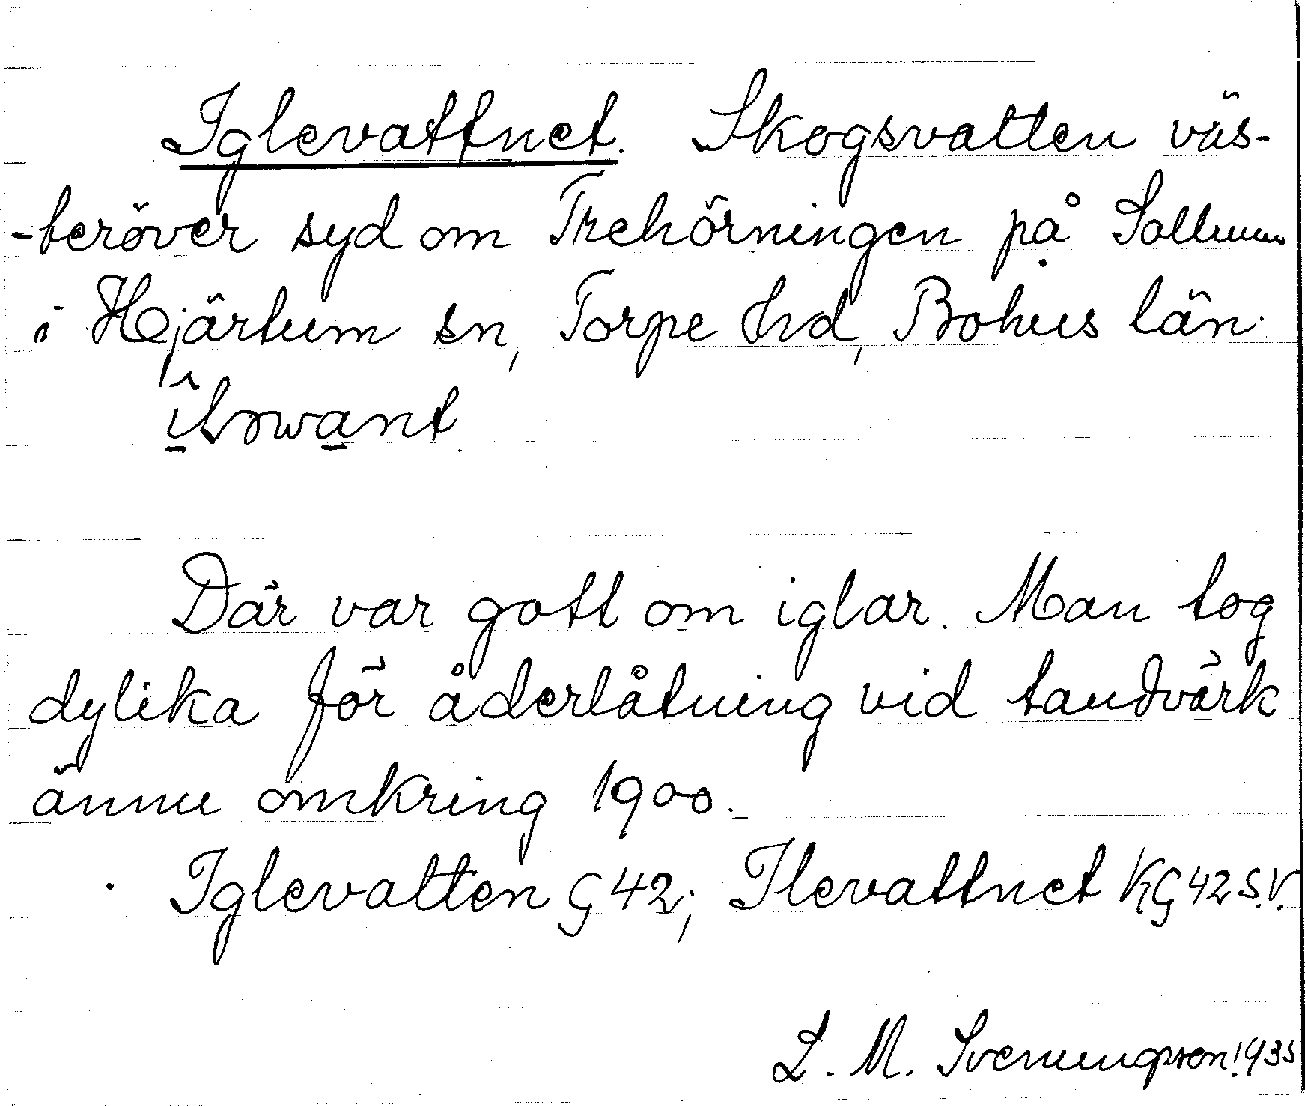 Iglevattnet. Skogsvatten väs-
-beröver syd om Trehörningen på Sollum
i Hjärtum sn, Torpe hd, Bohus län.
Där var gott om iglar. Man tog
dylika för åderlåtning vid tandvärk
ännu omkring 1900.
Iglevatten G 42; Ilevattnet KG 42 S.V.
L. M. Svenungsson 1935